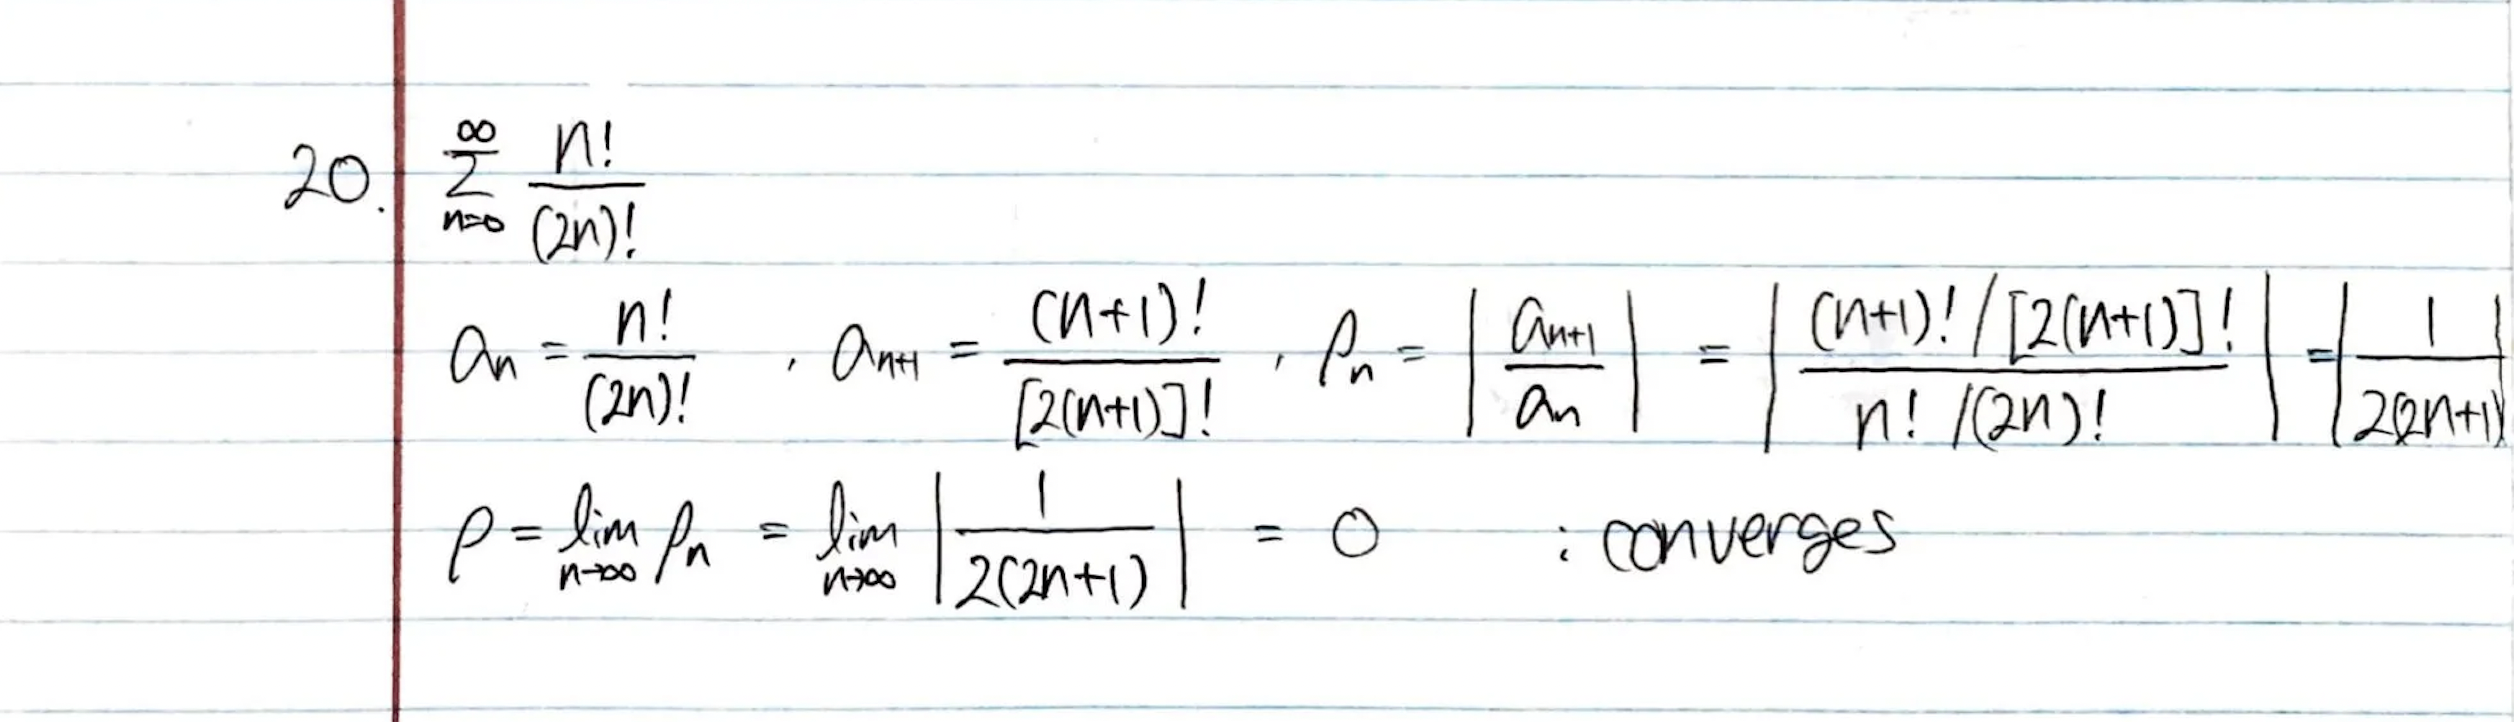 20. ∞ Σ n=0 n! / (2n)!
an = n! / (2n)! , an+1 = (n+1)! / [2(n+1)]! , ρn = | an+1 / an | = | (n+1)! / [2(n+1)]! / n! / (2n)! | = | 1 / 2(2n+1) |
ρ = lim n→∞ ρn = lim n→∞ | 1 / 2(2n+1) | = 0 : converges